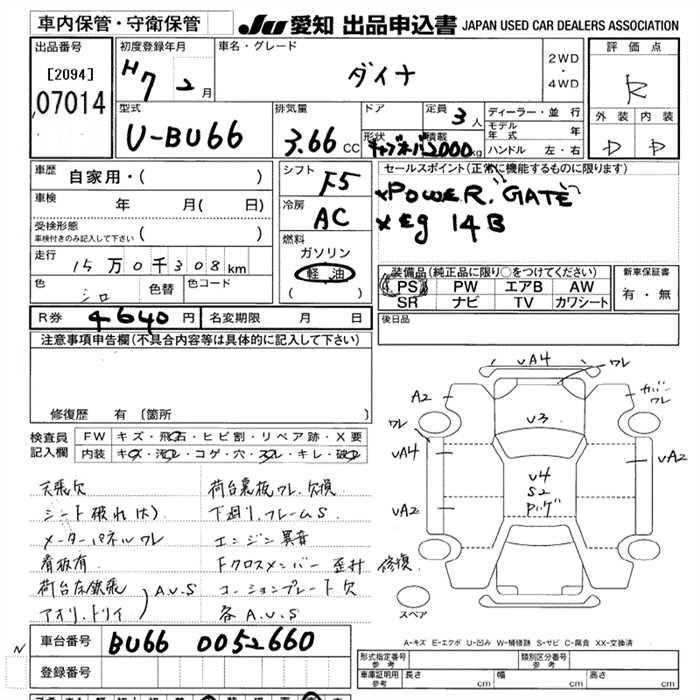 車内保管・守衛保管
JU 愛知 出品申込書 JAPAN USED CAR DEALERS ASSOCIATION
出品番号
[2094]
07014
初度登録年月
H7 2月
車名・グレード
ダイナ
2WD
・
4WD
評価点
R
外装 内装
D D
型式
U-BU66
排気量
3.66 CC
ドア
形状
定員 3人
積載
2000kg
ディーラー・並行
モデル
年式 年
ハンドル 左・右
車歴
自家用・( )
車検
年 月( 日)
受検形態
車検付きのみ記入して下さい ( )
走行
15万0千308km
色
シロ
色替
色コード
シフト
F5
冷房
AC
燃料
ガソリン
軽油
( )
セールスポイント(正常に機能するものに限ります)
×POWER. GATE
×Eg 14B
装備品(純正品に限り○をつけてください)
PS PW エアB AW
SR ナビ TV カワシート
新車保証書
有・無
R券 4640円 名変期限 月 日
後日品
注意事項申告欄(不具合内容等は具体的に記入して下さい)
修復歴 有 (箇所 )
検査員
記入欄
FW キズ・飛石・ヒビ割・リペア跡・X要
内装 キズ・汚レ・コゲ・穴・スレ・キレ・破レ
天張欠
荷台裏板ワレ.欠損
シート破れ(大)
下廻リ.フレームS
メーターパネルワレ
エンジン異音
看板有
Fクロスメンバー 歪 修復
A.U.S
コーションプレート欠
アオリ.トリイ
各A.U.S
UA4
ワレ
A2
カバーワレ
U3
ワレ
UA4
UA2
U4
S2
UA2
スペア
車台番号 BU66 0052660
N
登録番号
A-キズ E-エクボ U-凹み W-補修跡 S-サビ C-腐食 XX-交換済
形式指定番号
参考
類別区分番号
参考
車庫証明用
参考
長さ cm 幅 cm 高さ cm